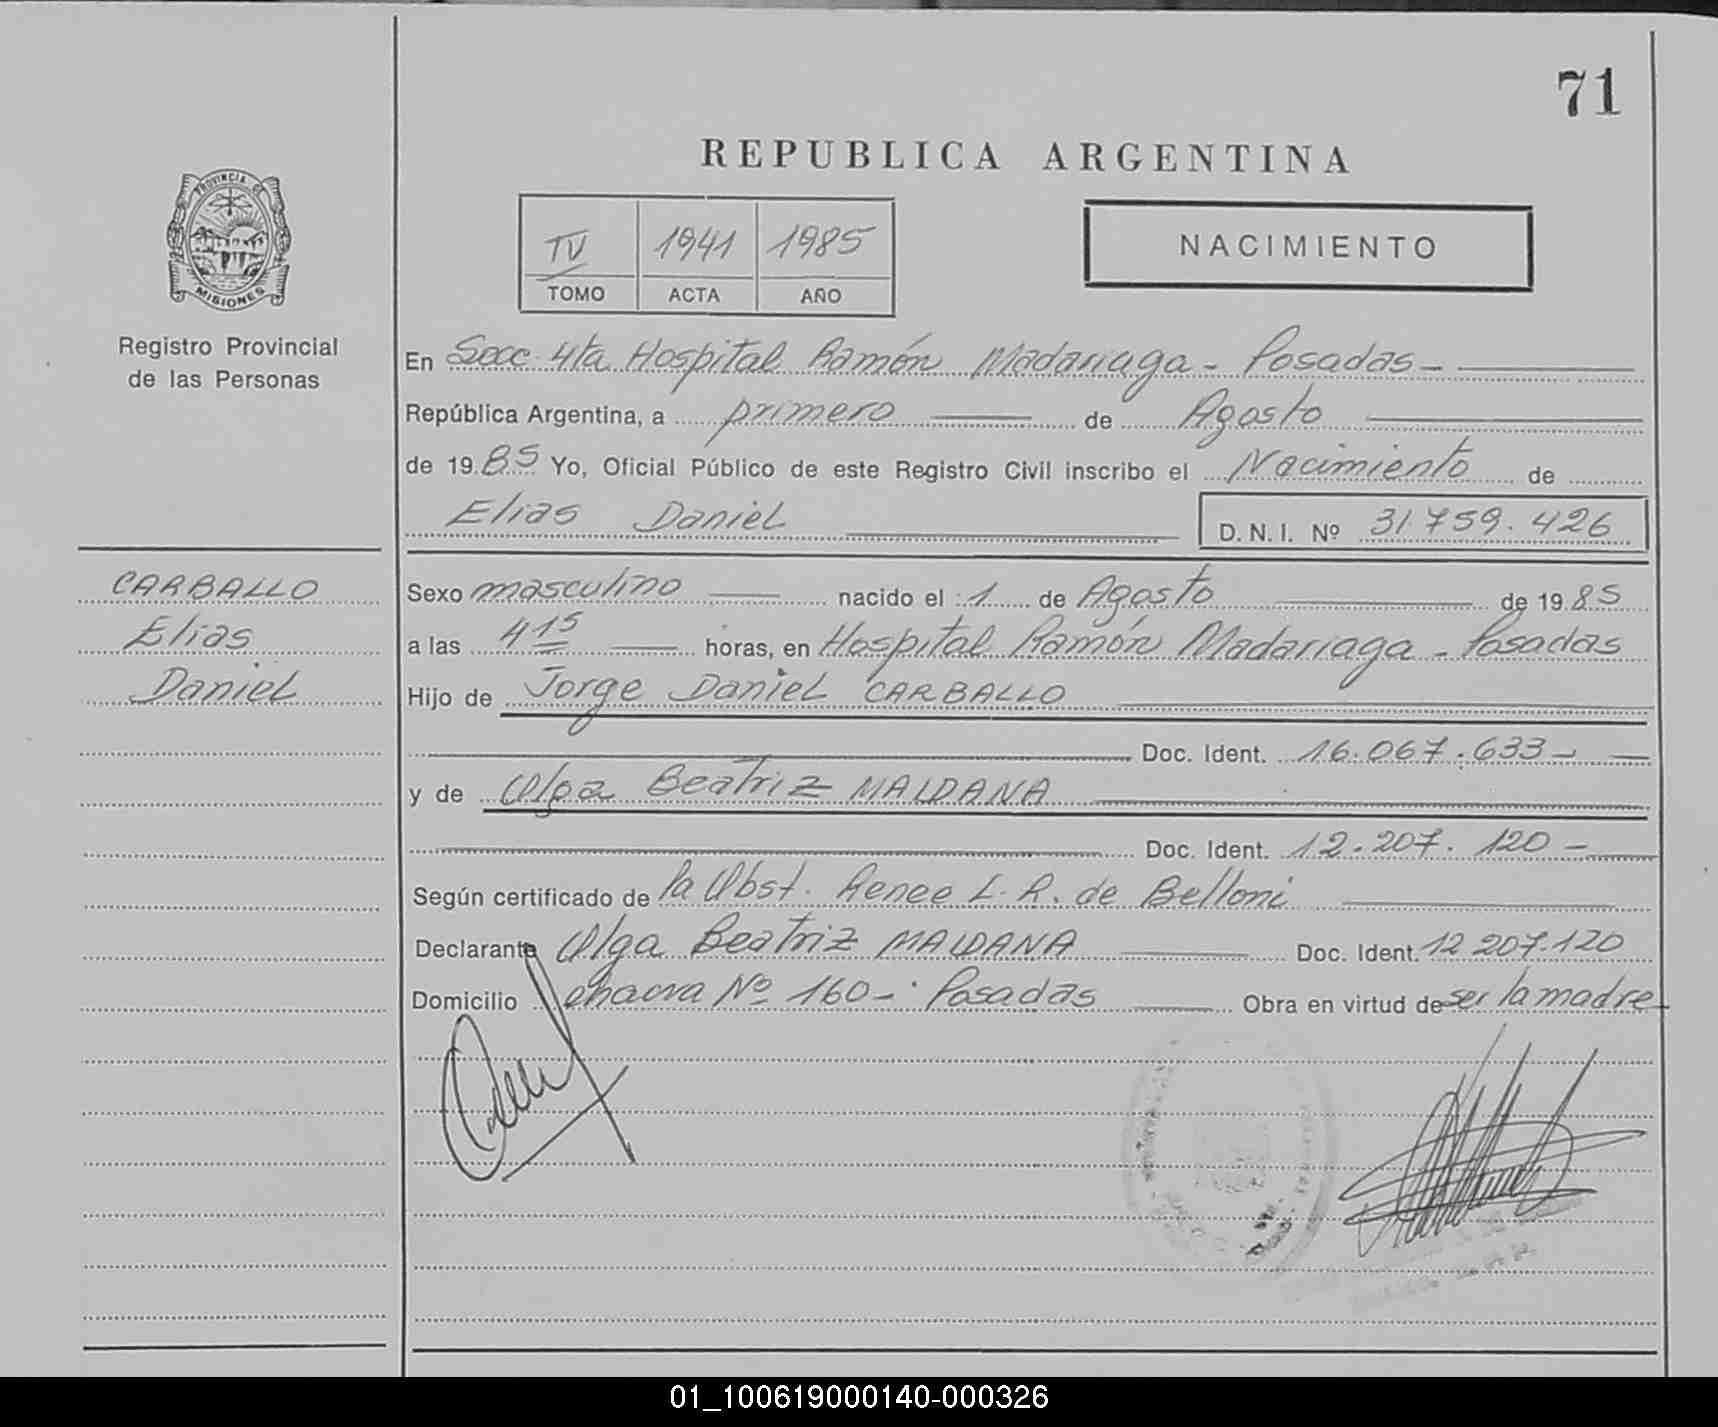 71
REPUBLICA ARGENTINA
PROVINCIA DE
MISIONES
Registro Provincial
de las Personas
IV 1941 1985
TOMO ACTA AÑO
NACIMIENTO
En Secc 4ta Hospital Ramón Madariaga - Posadas -
República Argentina, a primero de Agosto
de 1985 Yo, Oficial Público de este Registro Civil inscribo el Nacimiento de
Elias Daniel D. N. I. Nº 31759.426
CARBALLO
Elias
Daniel
Sexo masculino nacido el 1 de Agosto de 1985
a las 4 15 horas, en Hospital Ramón Madariaga - Posadas
Hijo de Jorge Daniel CARBALLO
Doc. Ident. 16.067.633 -
y de Olga Beatriz MALDANA
Doc. Ident. 12.207.120 -
Según certificado de la Obst. Renee L. R. de Belloni
Declarante Olga Beatriz MALDANA Doc. Ident. 12 207.120
Domicilio chacra Nº 160 - Posadas Obra en virtud de ser la madre
01_100619000140-000326